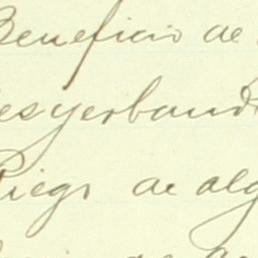 Beneficio de
esyerband
Riego de alg